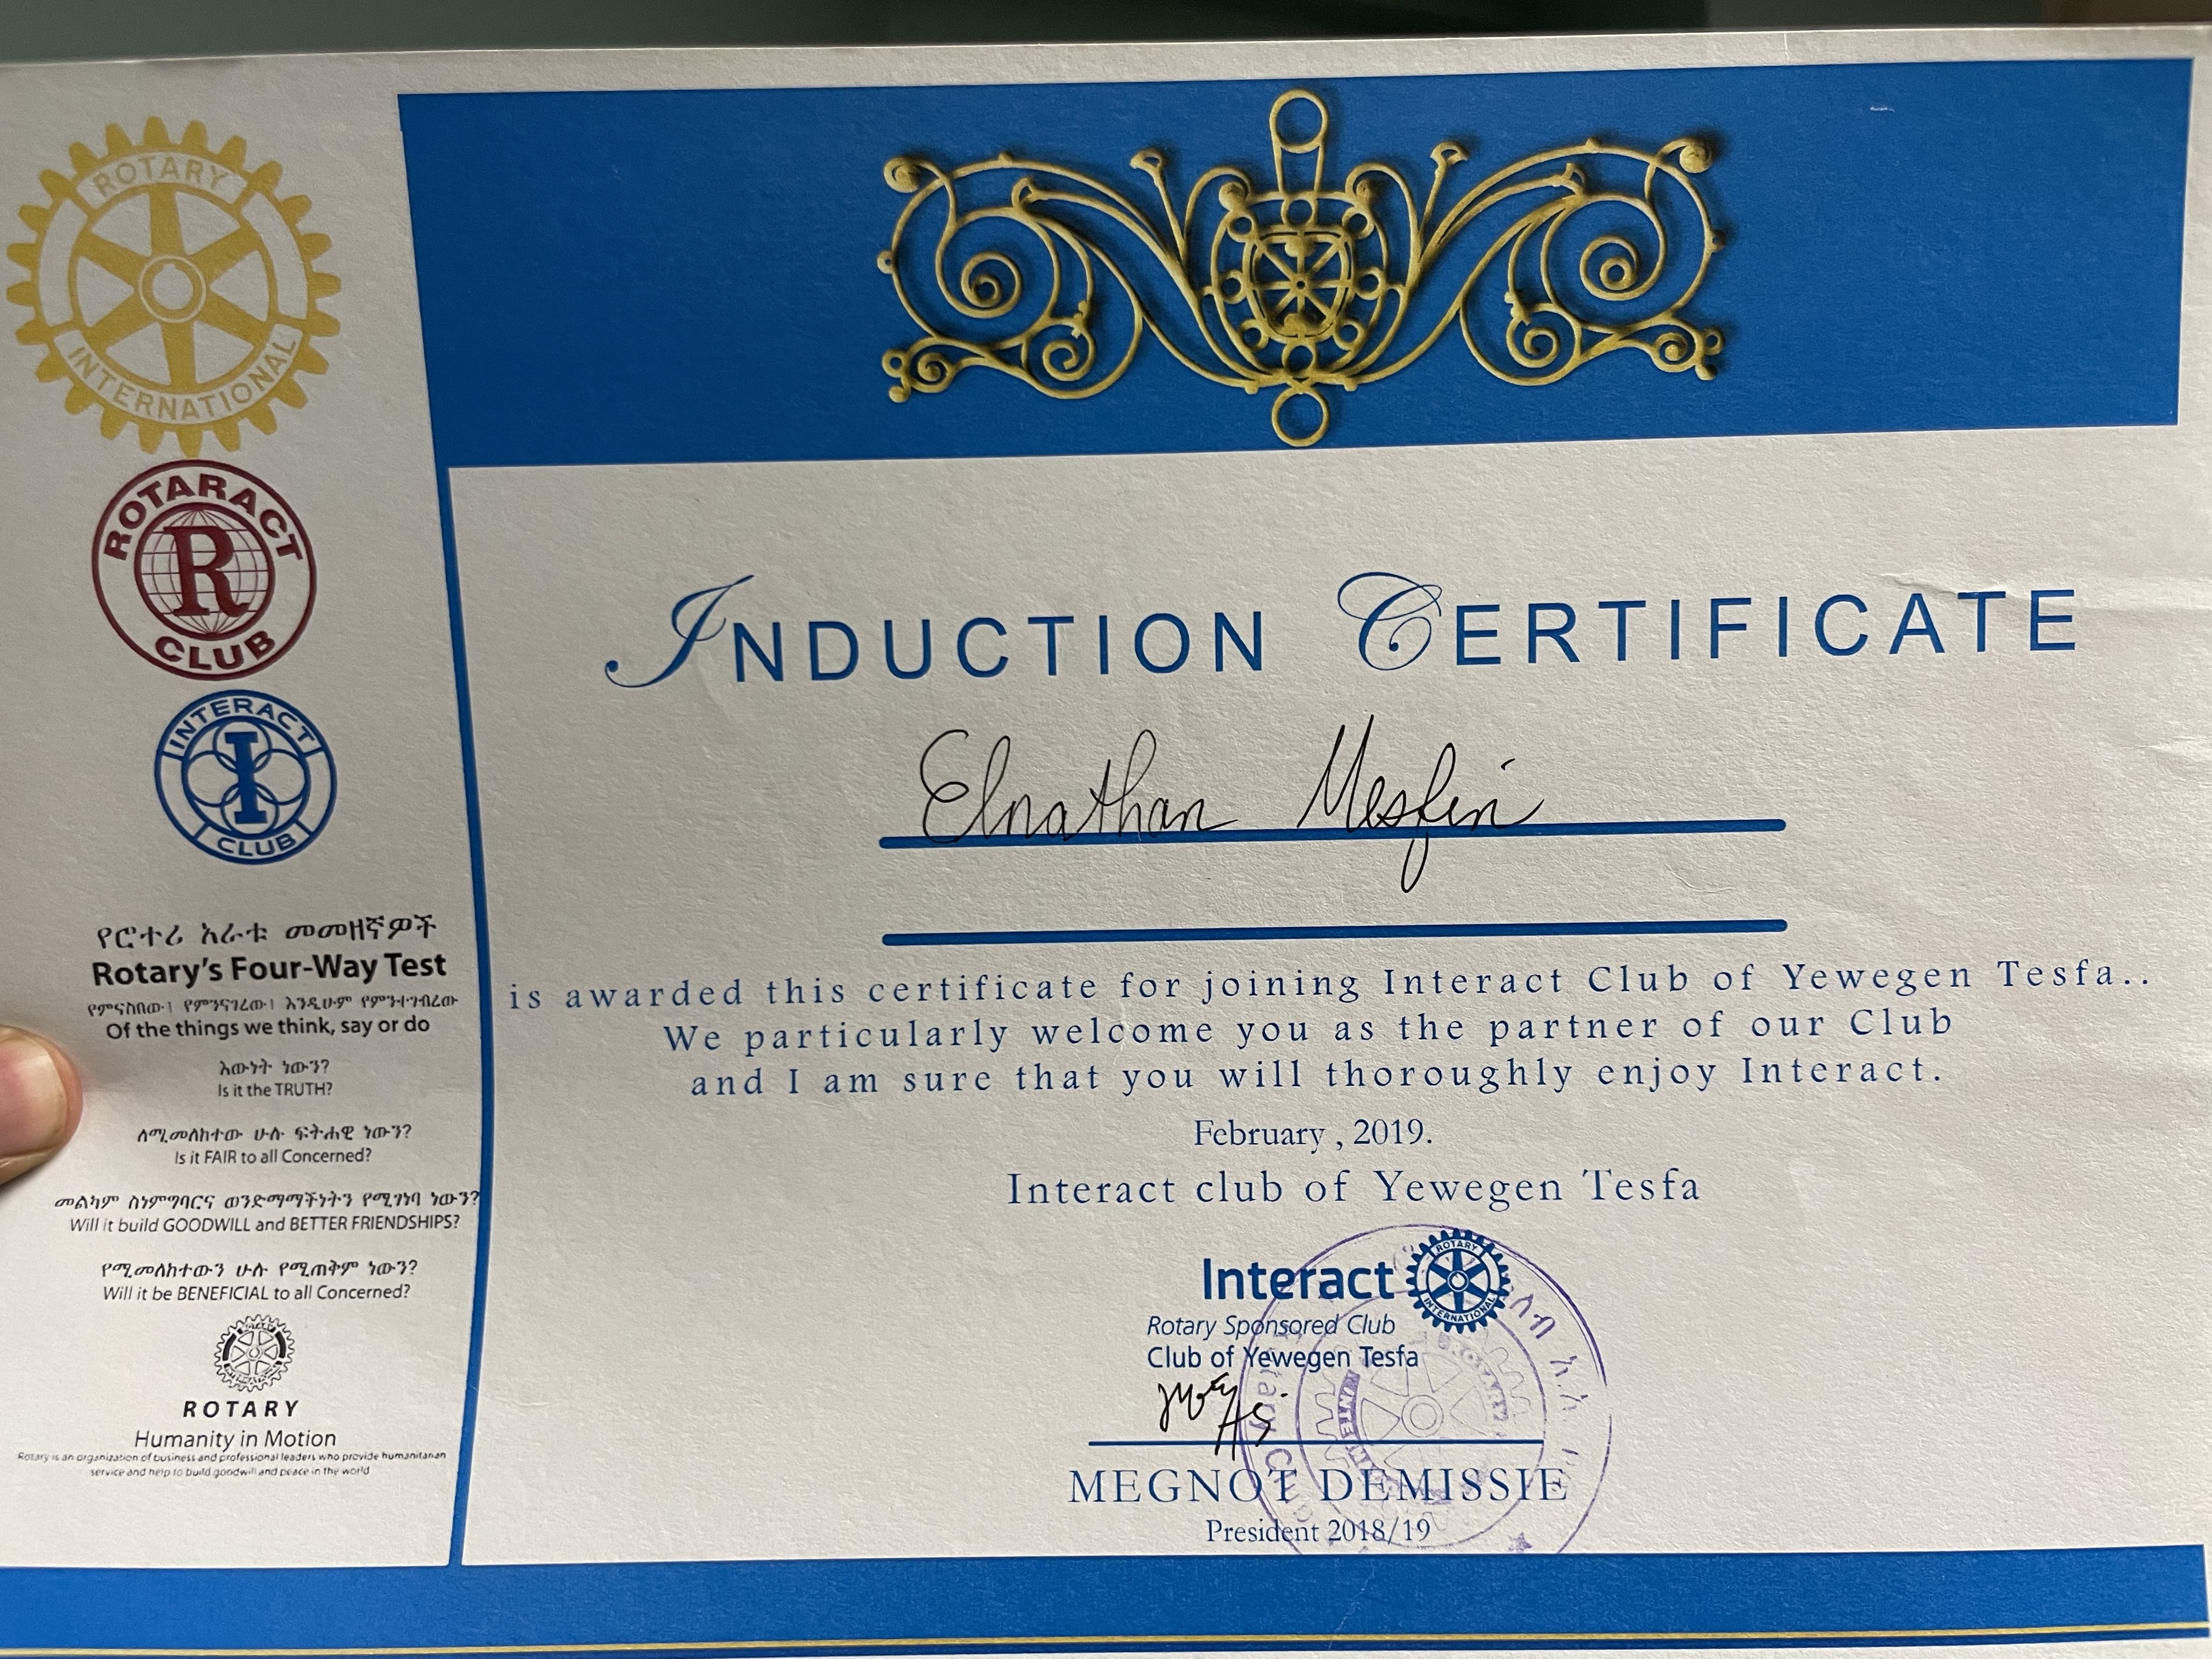 ROTARY
INTERNATIONAL
ROTARACT
R
CLUB
INTERACT
I
CLUB
የሮተሪ አራቱ መመዘኛዎች
Rotary's Four-Way Test
የምናስበው፣ የምንናገረው፣ እንዲሁም የምንተገብረው
Of the things we think, say or do
እውነት ነውን?
Is it the TRUTH?
ለሚመለከተው ሁሉ ፍትሐዊ ነውን?
Is it FAIR to all Concerned?
መልካም ስነምግባርና ወንድማማችነትን የሚገነባ ነውን?
Will it build GOODWILL and BETTER FRIENDSHIPS?
የሚመለከተውን ሁሉ የሚጠቅም ነውን?
Will it be BENEFICIAL to all Concerned?
ROTARY
Humanity in Motion
Rotary is an organization of business and professional leaders who provide humanitarian
service and help to build goodwill and peace in the world
INDUCTION CERTIFICATE
Elnathan Mesfin
is awarded this certificate for joining Interact Club of Yewegen Tesfa..
We particularly welcome you as the partner of our Club
and I am sure that you will thoroughly enjoy Interact.
February , 2019.
Interact club of Yewegen Tesfa
Interact
ROTARY
INTERNATIONAL
Rotary Sponsored Club
Club of Yewegen Tesfa
MEGNOT DEMISSIE
President 2018/19